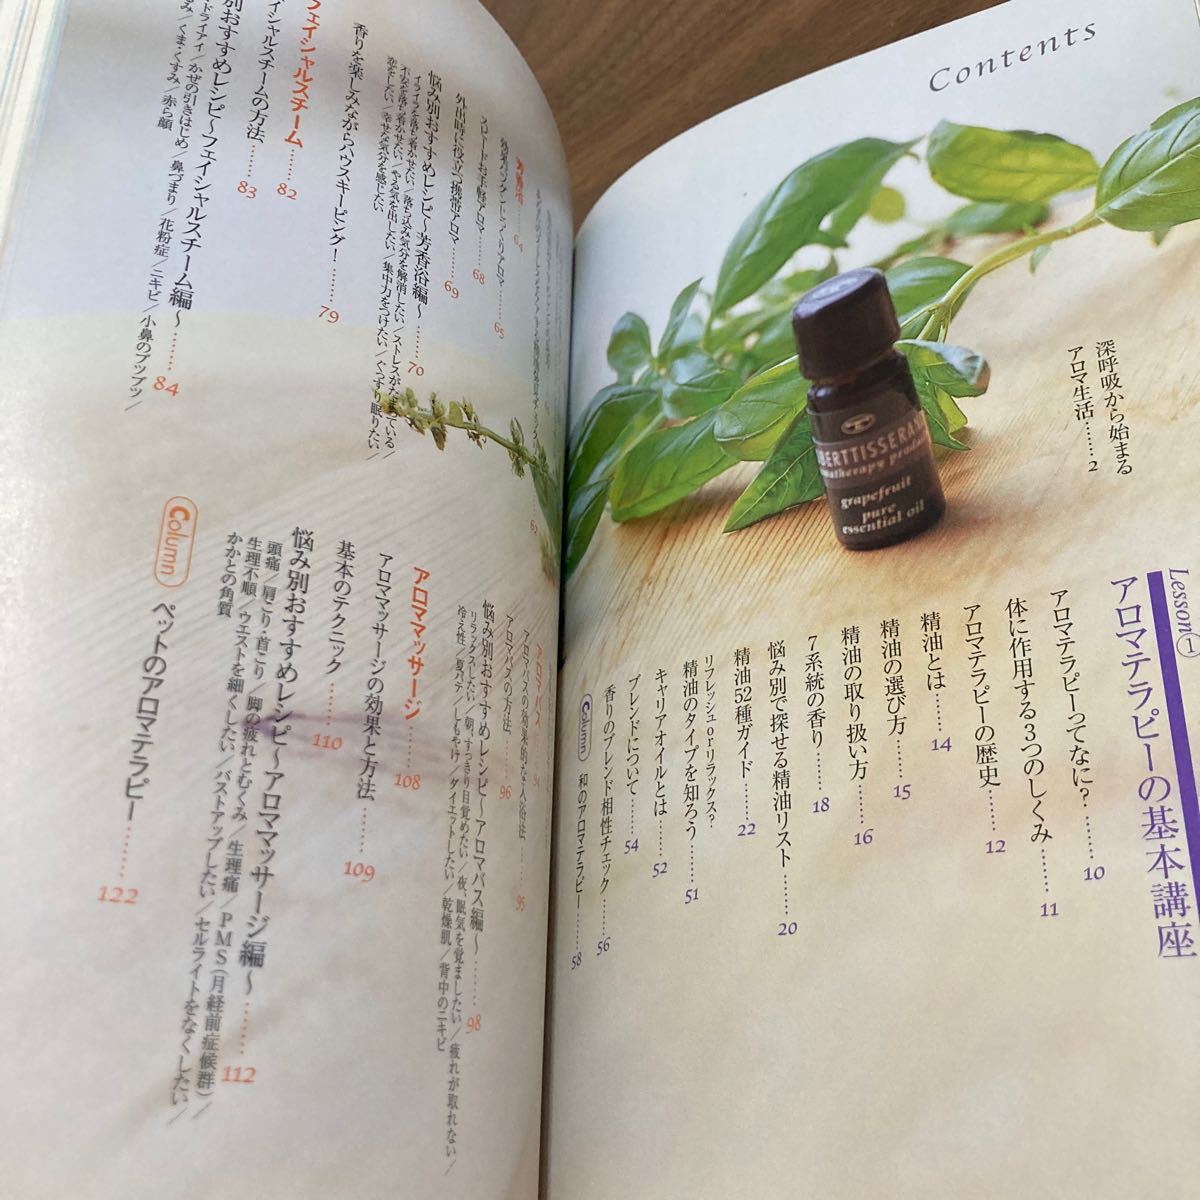 Contents
深呼吸から始まる
アロマ生活……2
BERTTISSERAN
grapefruit
pure
essential oil
Lesson①
アロマテラピーの基本講座
アロマテラピーってなに?……10
体に作用する3つのしくみ……11
アロマテラピーの歴史……12
精油とは……14
精油の選び方……15
精油の取り扱い方……16
7系統の香り……18
悩み別で探せる精油リスト……20
精油52種ガイド……22
リフレッシュ orリラックス?
精油のタイプを知ろう……51
キャリアオイルとは……52
ブレンドについて……54
香りのブレンド相性チェック……56
Column 和のアロマテラピー……58
62
芳香浴……64
65
スロードお手軽アロマ……68
外出時に役立つ携帯アロマ……69
悩み別おすすめレシピ〜芳香浴編〜……70
イライラを落ち着かせたい/落ち込み気分を解消したい/ストレスがたまっている/
不安を落ち着かせたい/やる気を出したい/集中力をつけたい/ぐっすり眠りたい/
恋をしたい/幸せな気分を感じたい
香りを楽しみながらハウスキーピング!……79
フェイシャルスチーム……82
フェイシャルスチームの方法……83
悩み別おすすめレシピ〜フェイシャルスチーム編〜……84
ドライアイ/かぜの引きはじめ/鼻づまり/花粉症/ニキビ/小鼻のブツブツ/
くま・くすみ/赤ら顔
アロマバス……94
アロマバスの効果的な入浴法……95
アロマバスの方法……96
悩み別おすすめレシピ〜アロマバス編〜……98
リラックスしたい/朝、すっきり目覚めたい/夜、眠気を覚ましたい/疲れが取れない/
冷え性/夏バテ/しもやけ/ダイエットしたい/乾燥肌/背中のニキビ
アロママッサージ……108
アロママッサージの効果と方法……109
基本のテクニック……110
悩み別おすすめレシピ〜アロママッサージ編〜……112
頭痛/肩こり・首こり/脚の疲れとむくみ/生理痛/PMS(月経前症候群)/
生理不順/ウエストを細くしたい/バストアップしたい/セルライトをなくしたい/
かかとの角質
Column ペットのアロマテラピー……122